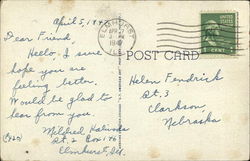 April 5, 19
Dear Friend,
Hello, I sure
hope you are
feeling better.
Would be glad to
hear from you.
Mildred
Rt. 2 Box 176
Elmhurst, Ill.
ELMHURST
APR 7
1940
ILL.
1 CENT
POST CARD
Helen Fendrick
Rt. 3
Clarkson,
Nebraska